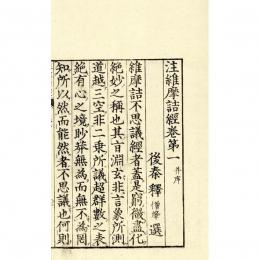 注維摩詰經卷第一 并序
後秦釋僧肇選
維摩詰不思議經者蓋是窮微盡化
絶妙之稱也其旨淵玄非言象所測
道越三空非二乗所議超群數之表
絶有心之境眇莽無為而無不為罔
知所以然而能然者不思議也何則